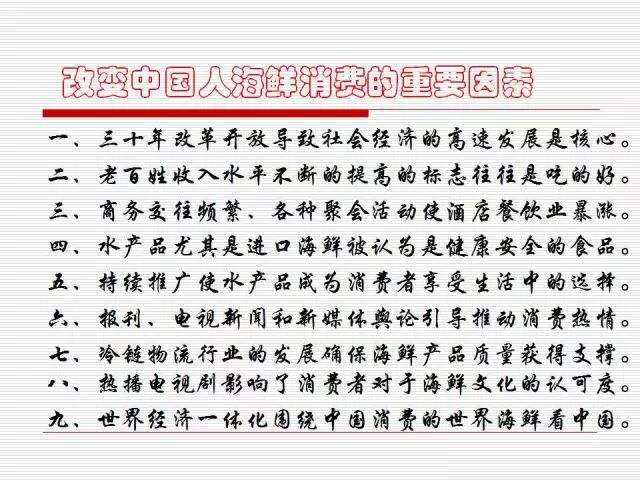 改变中国人海鲜消费的重要因素
一、三十年改革开放导致社会经济的高速发展是核心。
二、老百姓收入水平不断的提高的标志往往是吃的好。
三、商务交往频繁、各种聚会活动使酒店餐饮业暴涨。
四、水产品尤其是进口海鲜被认为是健康安全的食品。
五、持续推广使水产品成为消费者享受生活中的选择。
六、报刊、电视新闻和新媒体舆论引导推动消费热情。
七、冷链物流行业的发展确保海鲜产品质量获得支撑。
八、热播电视剧影响了消费者对于海鲜文化的认可度。
九、世界经济一体化围绕中国消费的世界海鲜看中国。